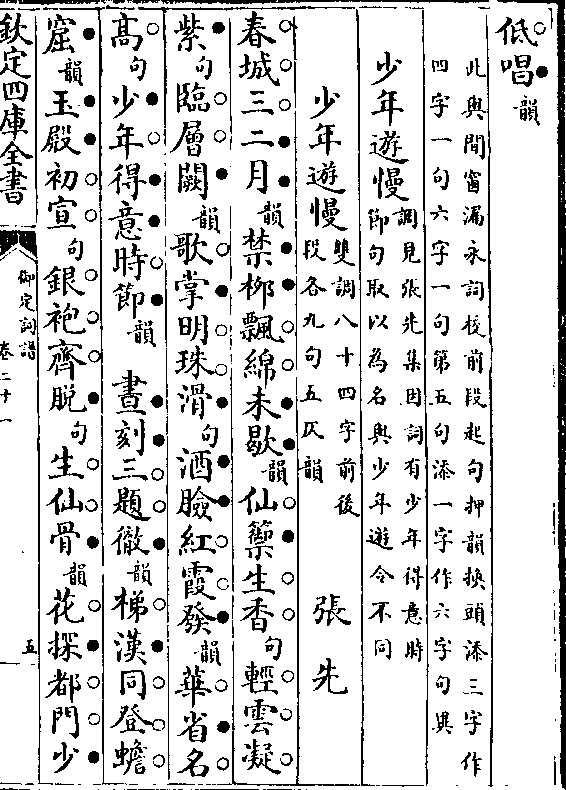 低唱韻
此與間窗漏永詞校前段起句押韻換頭添三字作
四字一句六字一句第五句添一字作六字句異
少年遊慢 調見張先集因詞有少年得意時
節句取以為名與少年遊令不同
少年遊慢 雙調八十四字前後
段各九句五仄韻 張先
春城三二月韻禁栁飄綿未歇韻仙籞生香句輕雲凝
紫句臨層闕韻歌掌明珠滑句酒臉紅霞發韻華省名
髙句少年得意時節韻 晝刻三題徹韻梯漢同登蟾
窟韻玉殿初宣句銀袍齊脫句生仙骨韻花探都門少
欽定四庫全書
御定詞譜
卷二十一
五